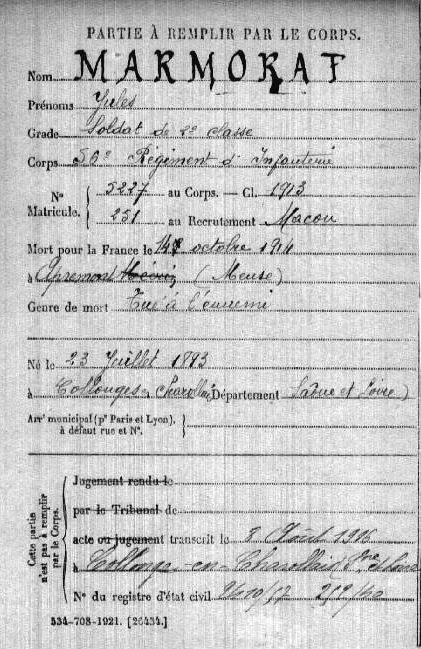 PARTIE À REMPLIR PAR LE CORPS.
Nom MARMORAT
Prénoms Jules
Grade Soldat de 2e classe
Corps 56e Régiment d'Infanterie
N° Matricule. { 5227 au Corps. — Cl. 1913
251 au Recrutement Macon
Mort pour la France le octobre 1914
à Apremont (Meuse)
Genre de mort Tué à l'ennemi
Né le 23 Juillet 1893
à Collonges en Charollais Département Saône et Loire)
Arrt municipal (pr Paris et Lyon),
à défaut rue et N°.
Cette partie n'est pas à remplir par le Corps.
Jugement rendu le
par le Tribunal de
acte ou jugement transcrit le 8 Août 1916
à Collonge-en-Charollais Sne et Loire
N° du registre d'état civil
534-708-1921. [26434.]